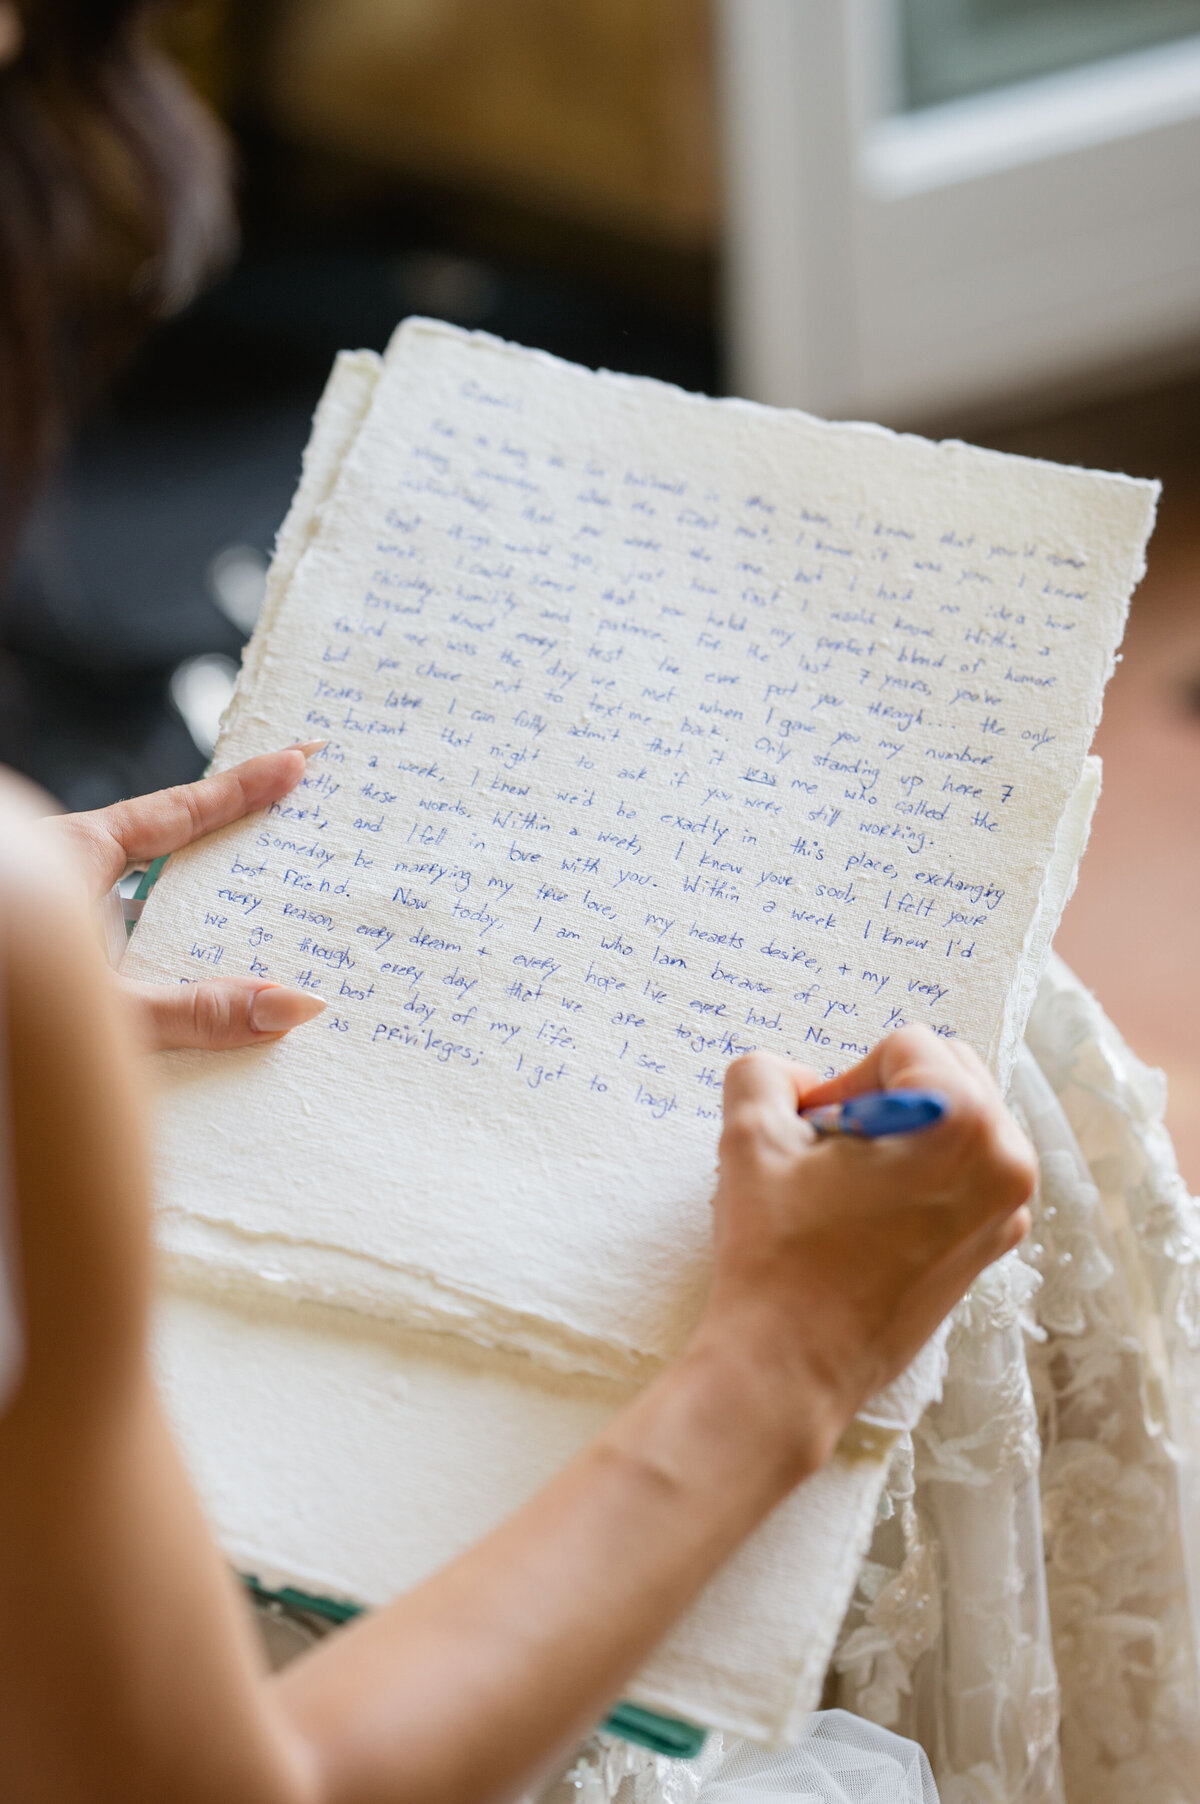 I knew that you'd come
when we first met, I knew it was you. I knew
that you were the one, but I had no idea how
fast things would go, just how fast I would know. Within a
week, I could sense that you held my perfect blend of humor
chivalry, humility and patience. For the last 7 years, you've
passed almost every test I've ever put you through... the only
failed me was the day we met when I gave you my number
but you chose not to text me back. Only standing up here 7
Years later I can fully admit that it was me who called the
restaurant that night to ask if you were still working.
within a week, I knew we'd be exactly in this place, exchanging
actly these words. Within a week, I knew your soul, I felt your
heart, and I fell in love with you. Within a week I knew I'd
Someday be marrying my true love, my hearts desire, + my very
best friend. Now today, I am who I am because of you. You are
every reason, every dream + every hope I've ever had. No ma
we go through, every day that we are together
will be the best day of my life. I see the
as privileges; I get to laugh wi